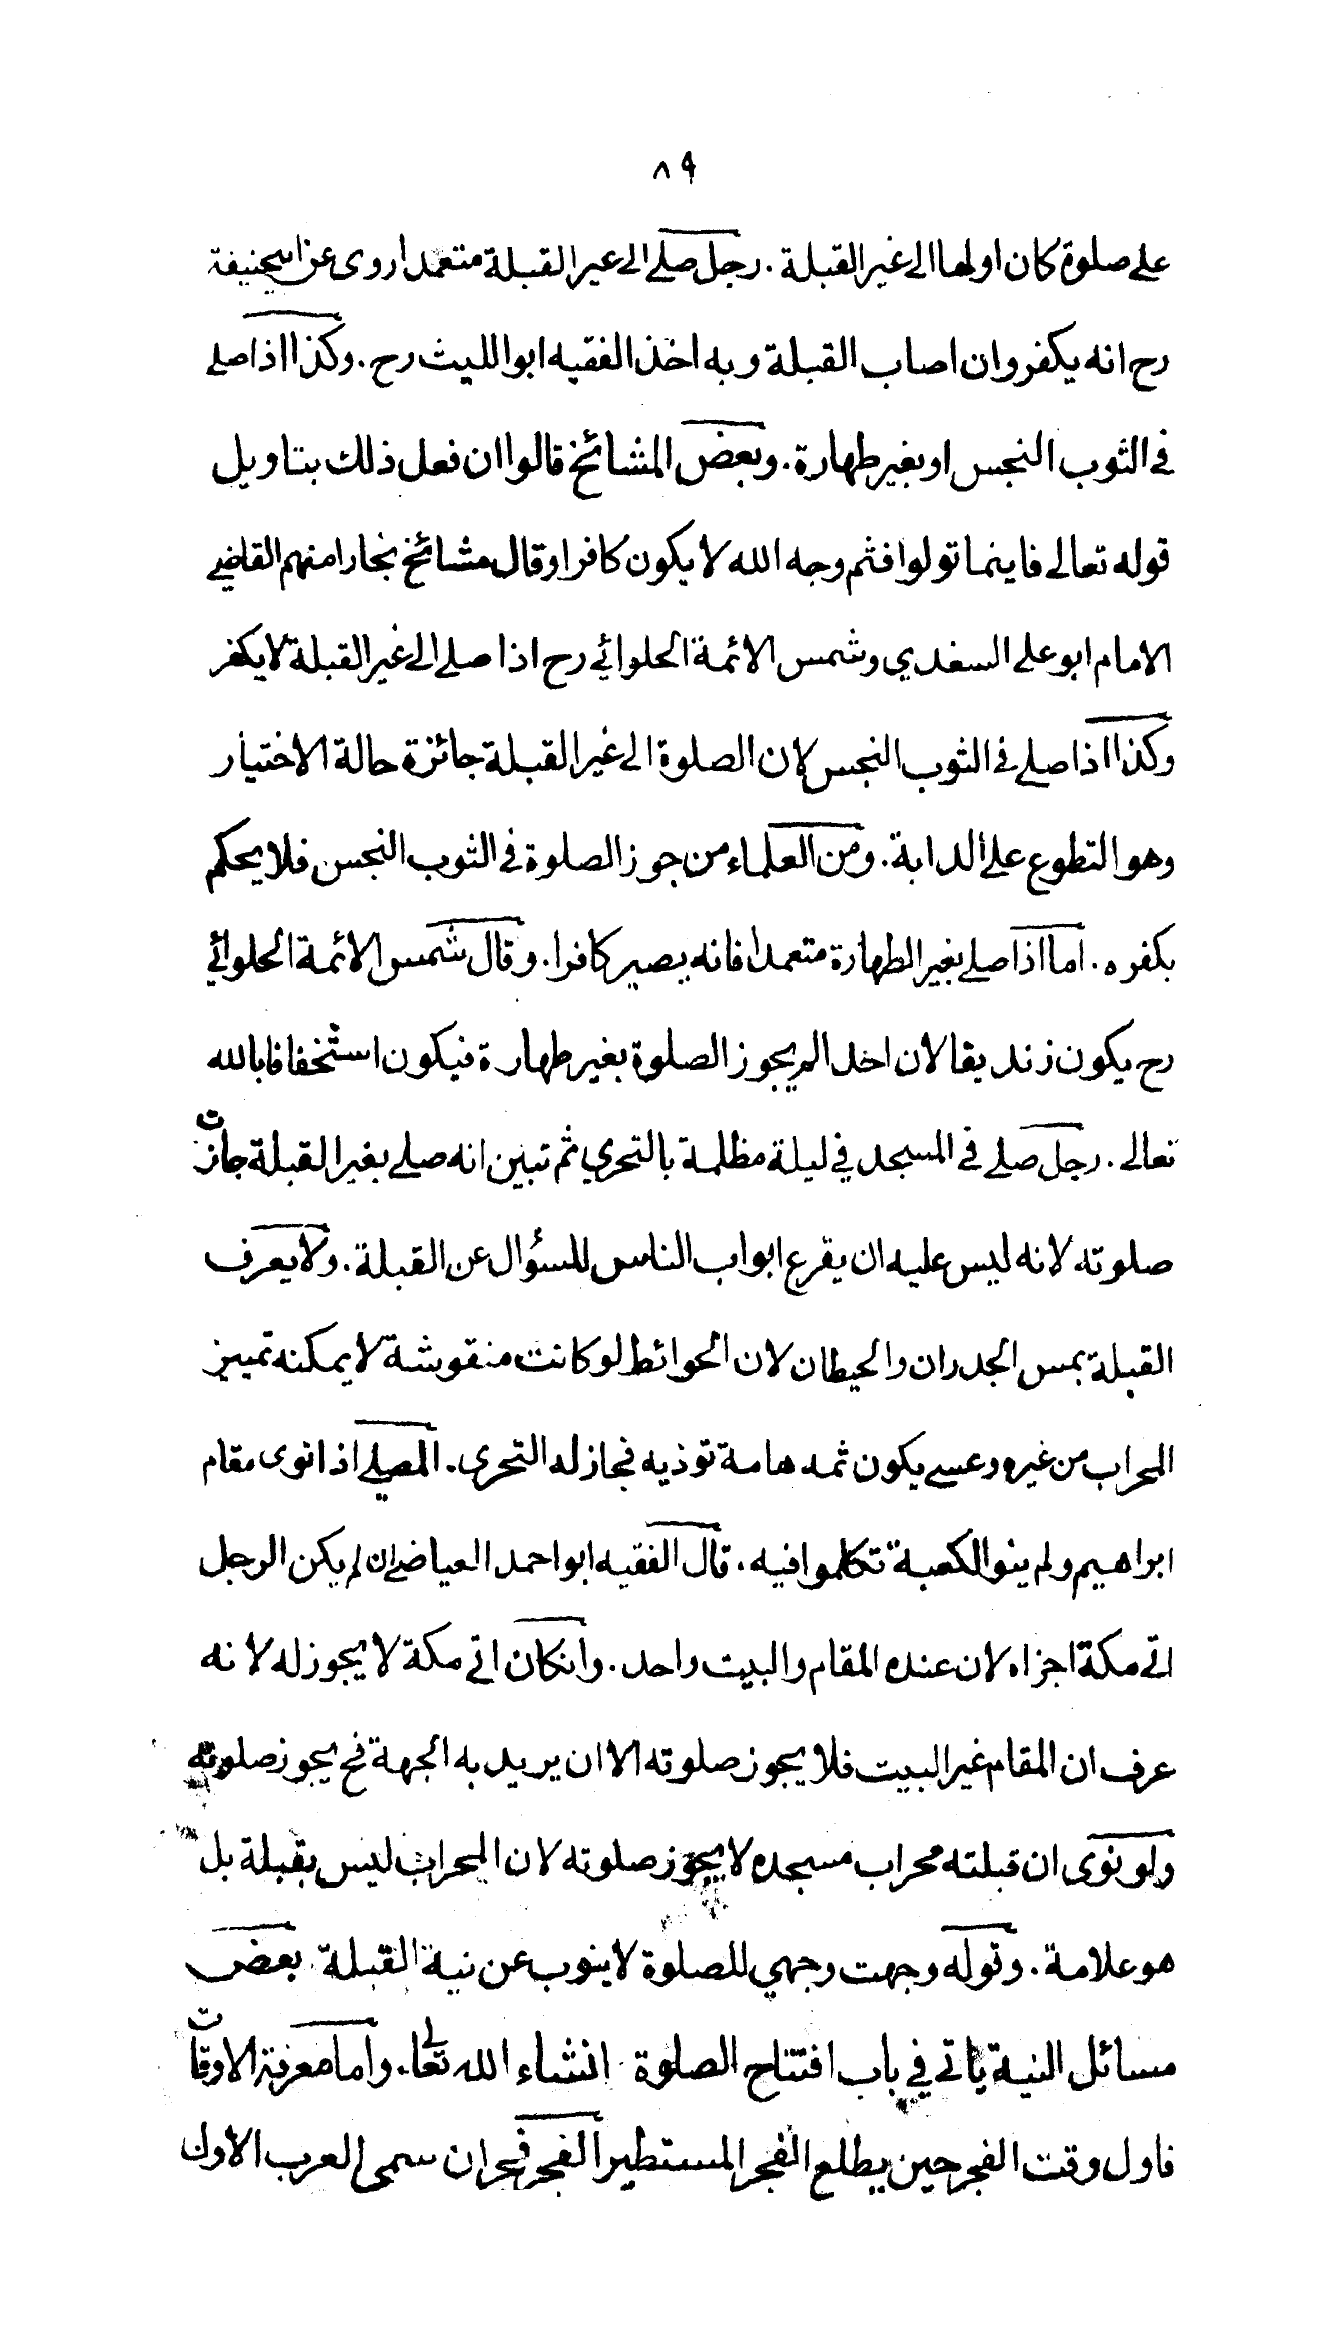 ٨٩
على صلوة كان اولها الى غير القبلة . رجل صلے الى غير القبلة متعمدا روى عن ابيحنيفة
رح انه يكفر وان اصاب القبلة وبه اخذ الفقيه ابو الليث رح . وكذا اذا صلے
في الثوب النجس او بغير طهارة . وبعض المشائخ قالوا ان فعل ذلك بتاويل
قوله تعالى فاينما تولوا فثم وجه الله لا يكون كافرا وقال مشائخ بخارا منهم القاضي
الامام ابو على السغدي وشمس الائمة الحلوائي رح اذا صلے الى غير القبلة لا يكفر
وكذا اذا صلے في الثوب النجس لان الصلوة الى غير القبلة جائزة حالة الاختيار
وهو التطوع على الدابة . ومن العلماء من جوز الصلوة في الثوب النجس فلا يحكم
بكفره . اما اذا صلے بغير الطهارة متعمدا فانه يصير كافرا . وقال شمس الائمة الحلوائي
رح يكون زنديقا لان احدا لم يجوز الصلوة بغير طهارة فيكون استخفافا بالله
تعالى . رجل صلے في المسجد في ليلة مظلمة بالتحري ثم تبين انه صلے بغير القبلة جازت
صلوته لانه ليس عليه ان يقرع ابواب الناس للسؤال عن القبلة . ولا يعرف
القبلة بمس الجدران والحيطان لان الحوائط لو كانت منقوشة لا يمكنه تمييز
المحراب من غيره وعسے يكون ثمه هامة توذيه فجاز له التحرى . المصلے اذا نوى مقام
ابراهيم ولم ينو الكعبة تكلموا فيه . قال الفقيه ابو احمد العياضي ان لم يكن الرجل
اتى مكة اجزاه لان عنده المقام والبيت واحد . وانكان اتى مكة لا يجوز له لانه
عرف ان المقام غير البيت فلا يجوز صلوته الا ان يريد به الجهة فح يجوز صلوته
ولو نوى ان قبلته محراب مسجده لا يجوز صلوته لان المحراب ليس بقبلة بل
هو علامة . وقوله وجهت وجهي للصلوة لا ينوب عن نية القبلة . بعض
مسائل النية ياتى في باب افتتاح الصلوة انشاء الله تعالى . واما معرفة الاوقات
فاول وقت الفجر حين يطلع الفجر المستطير الفجر فجران سمى العرب الاول